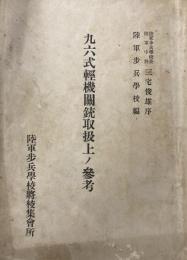 陸軍步兵學校長
陸軍中將 三宅俊雄序
陸軍步兵學校編
九六式輕機關銃取扱上ノ參考
陸軍步兵學校將校集會所